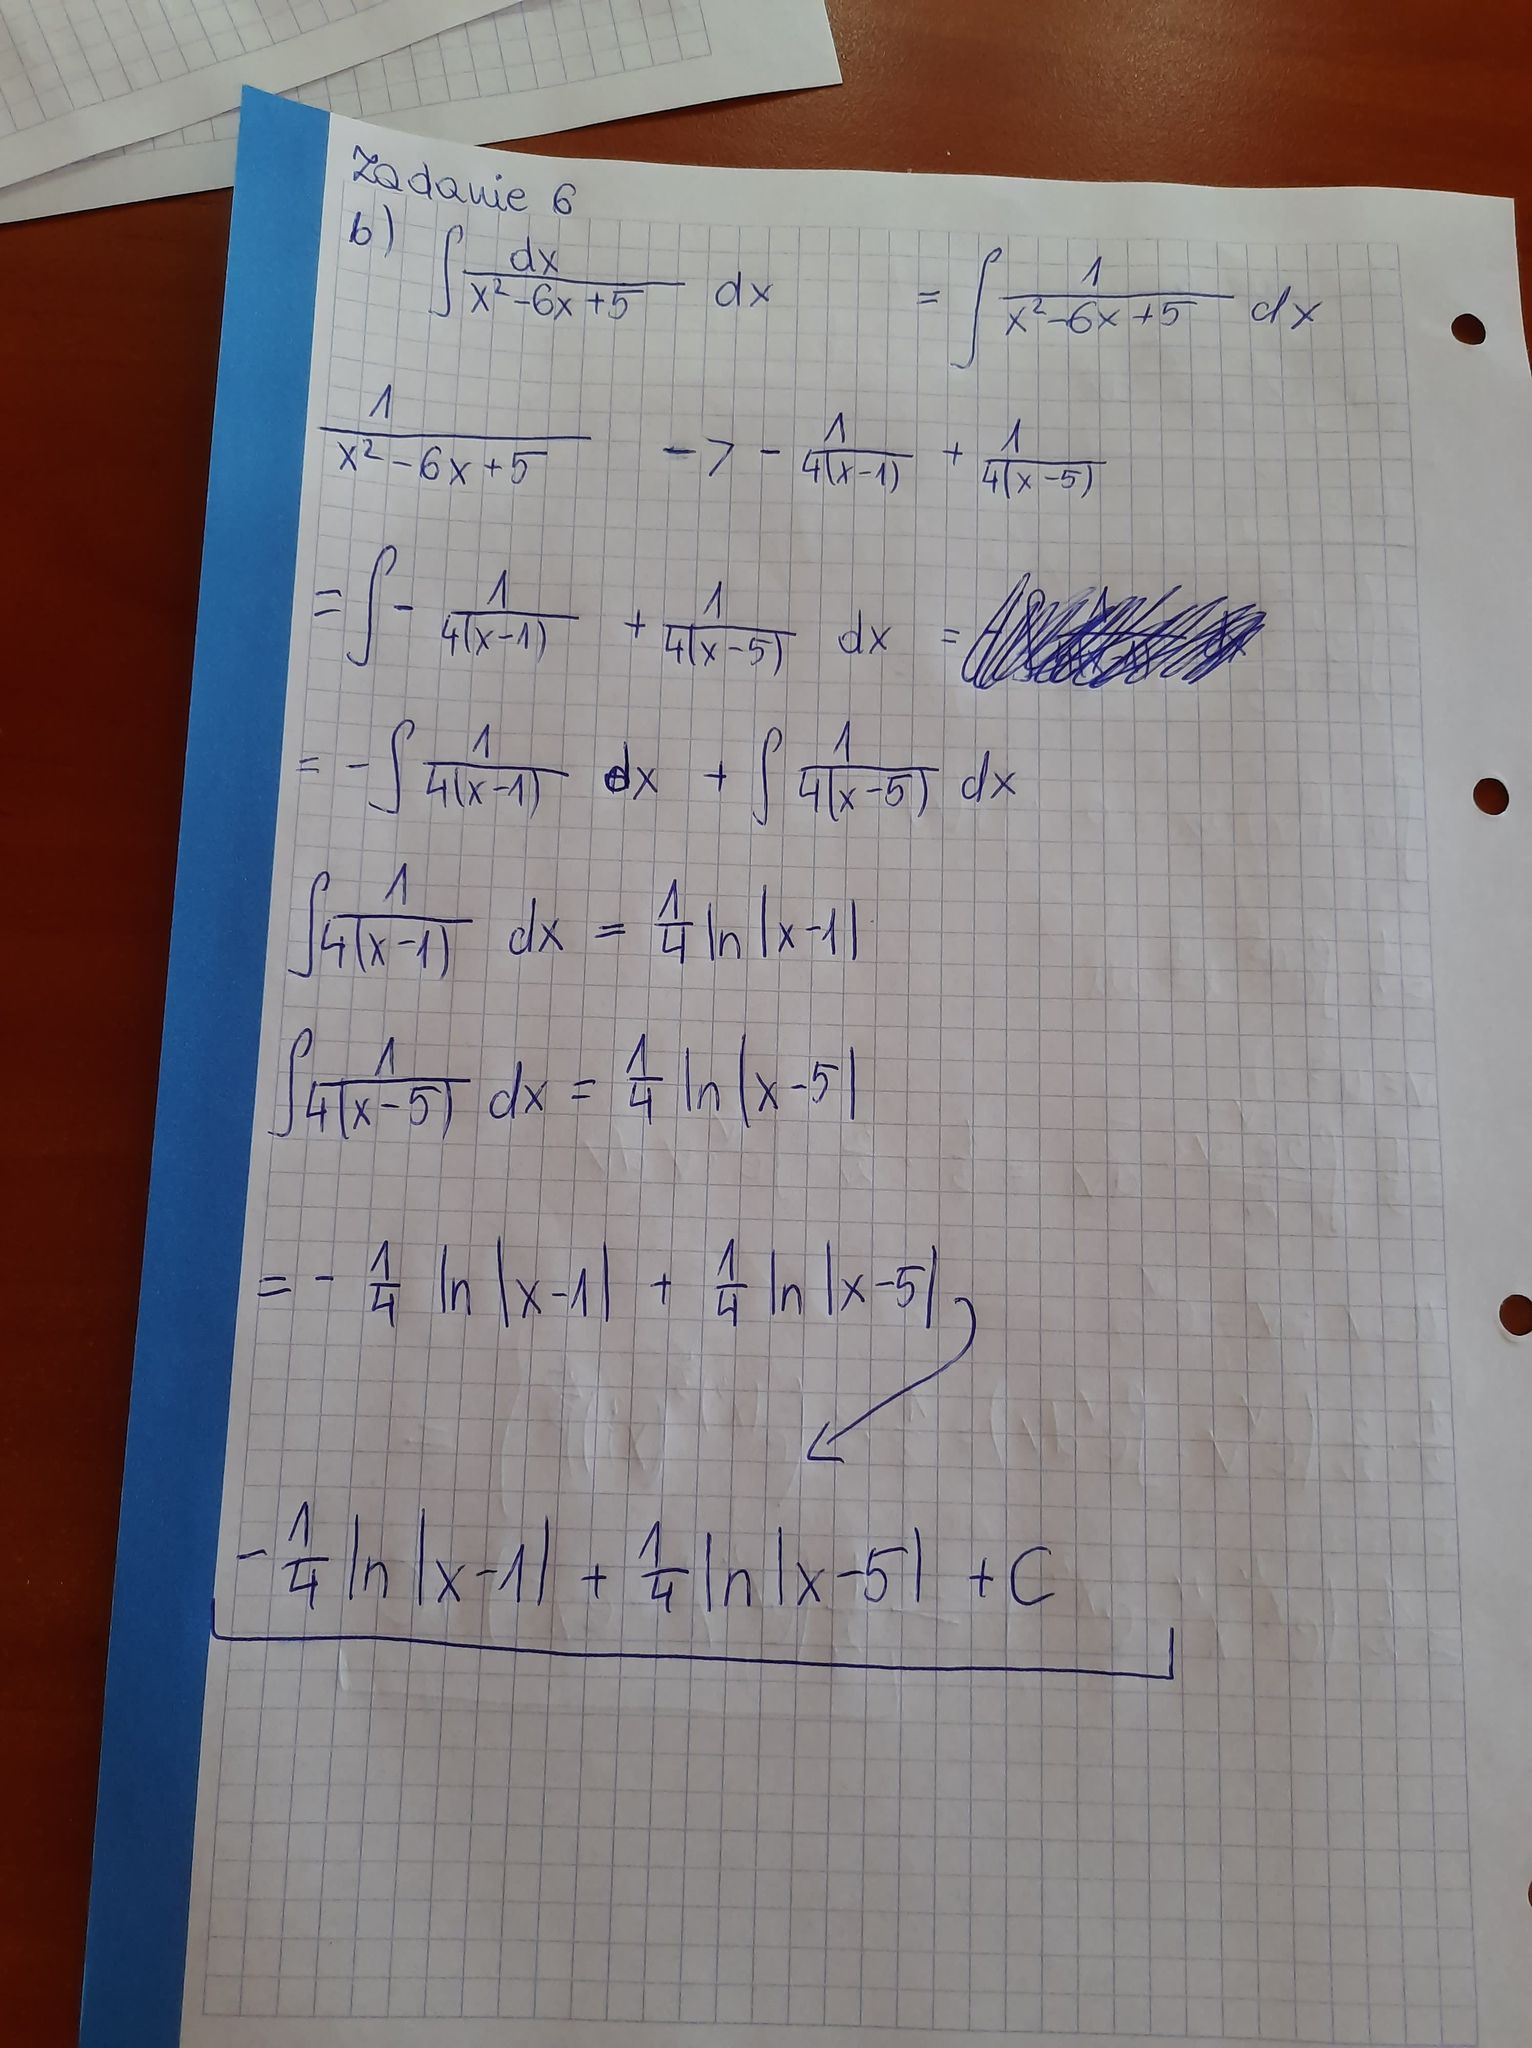 Zadanie 6
b) ∫ dx/(x²-6x+5) dx = ∫ 1/(x²-6x+5) dx
1/(x²-6x+5) -> - 1/(4(x-1)) + 1/(4(x-5))
= ∫ - 1/(4(x-1)) + 1/(4(x-5)) dx =
= - ∫ 1/(4(x-1)) dx + ∫ 1/(4(x-5)) dx
∫ 1/(4(x-1)) dx = 1/4 ln |x-1|
∫ 1/(4(x-5)) dx = 1/4 ln |x-5|
= - 1/4 ln |x-1| + 1/4 ln |x-5|
- 1/4 ln |x-1| + 1/4 ln |x-5| + C